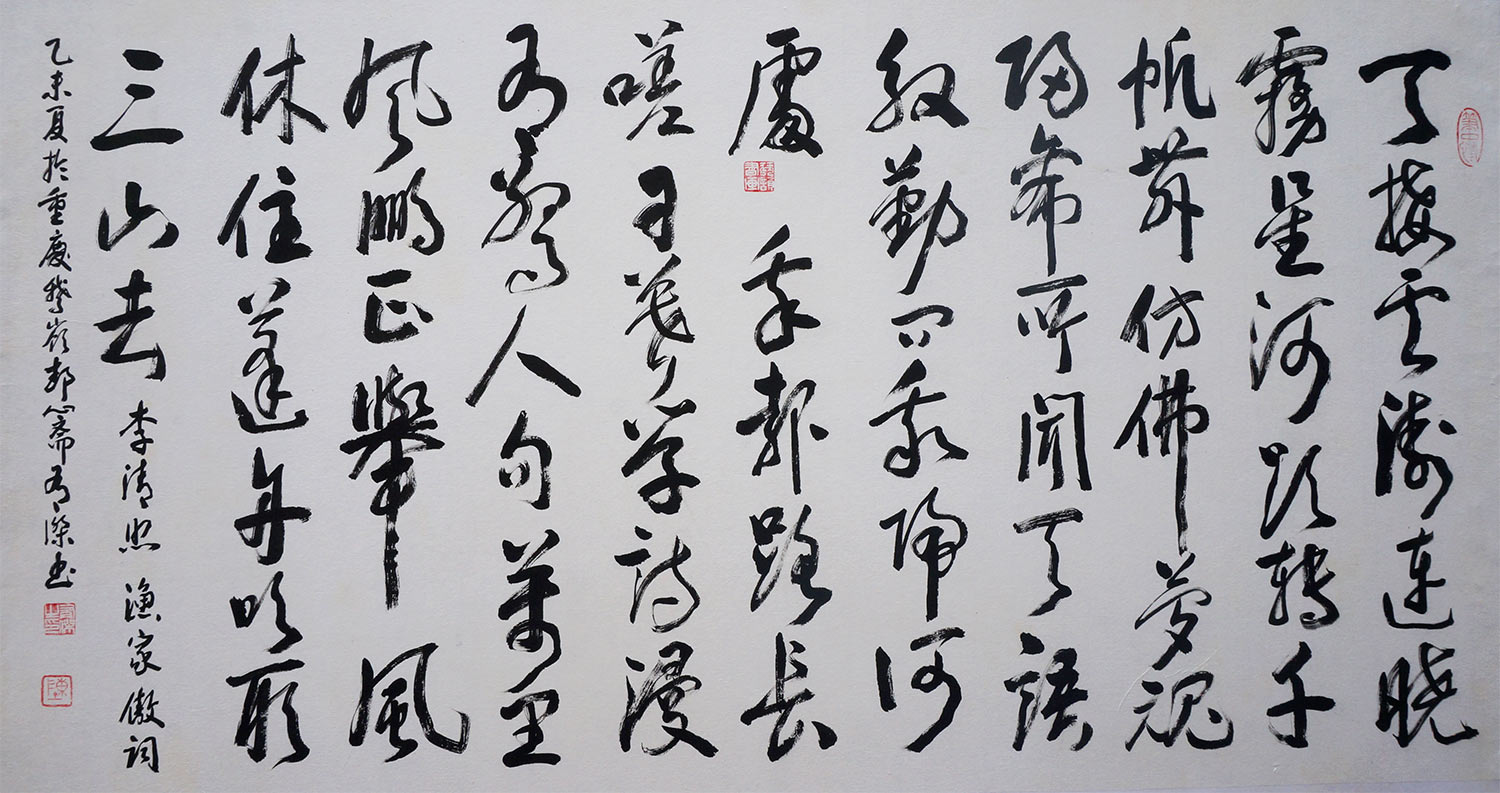 天接云濤連曉
霧星河欲轉千
帆舞仿佛夢魂
歸帝所聞天語
殷勤問我歸何
處 我報路長
嗟日暮學詩漫
有驚人句萬里
風鵬正舉 風
休住蓬舟吹取
三山去 李清照 漁家傲詞
乙未夏於重慶鵝嶺齋有傑書